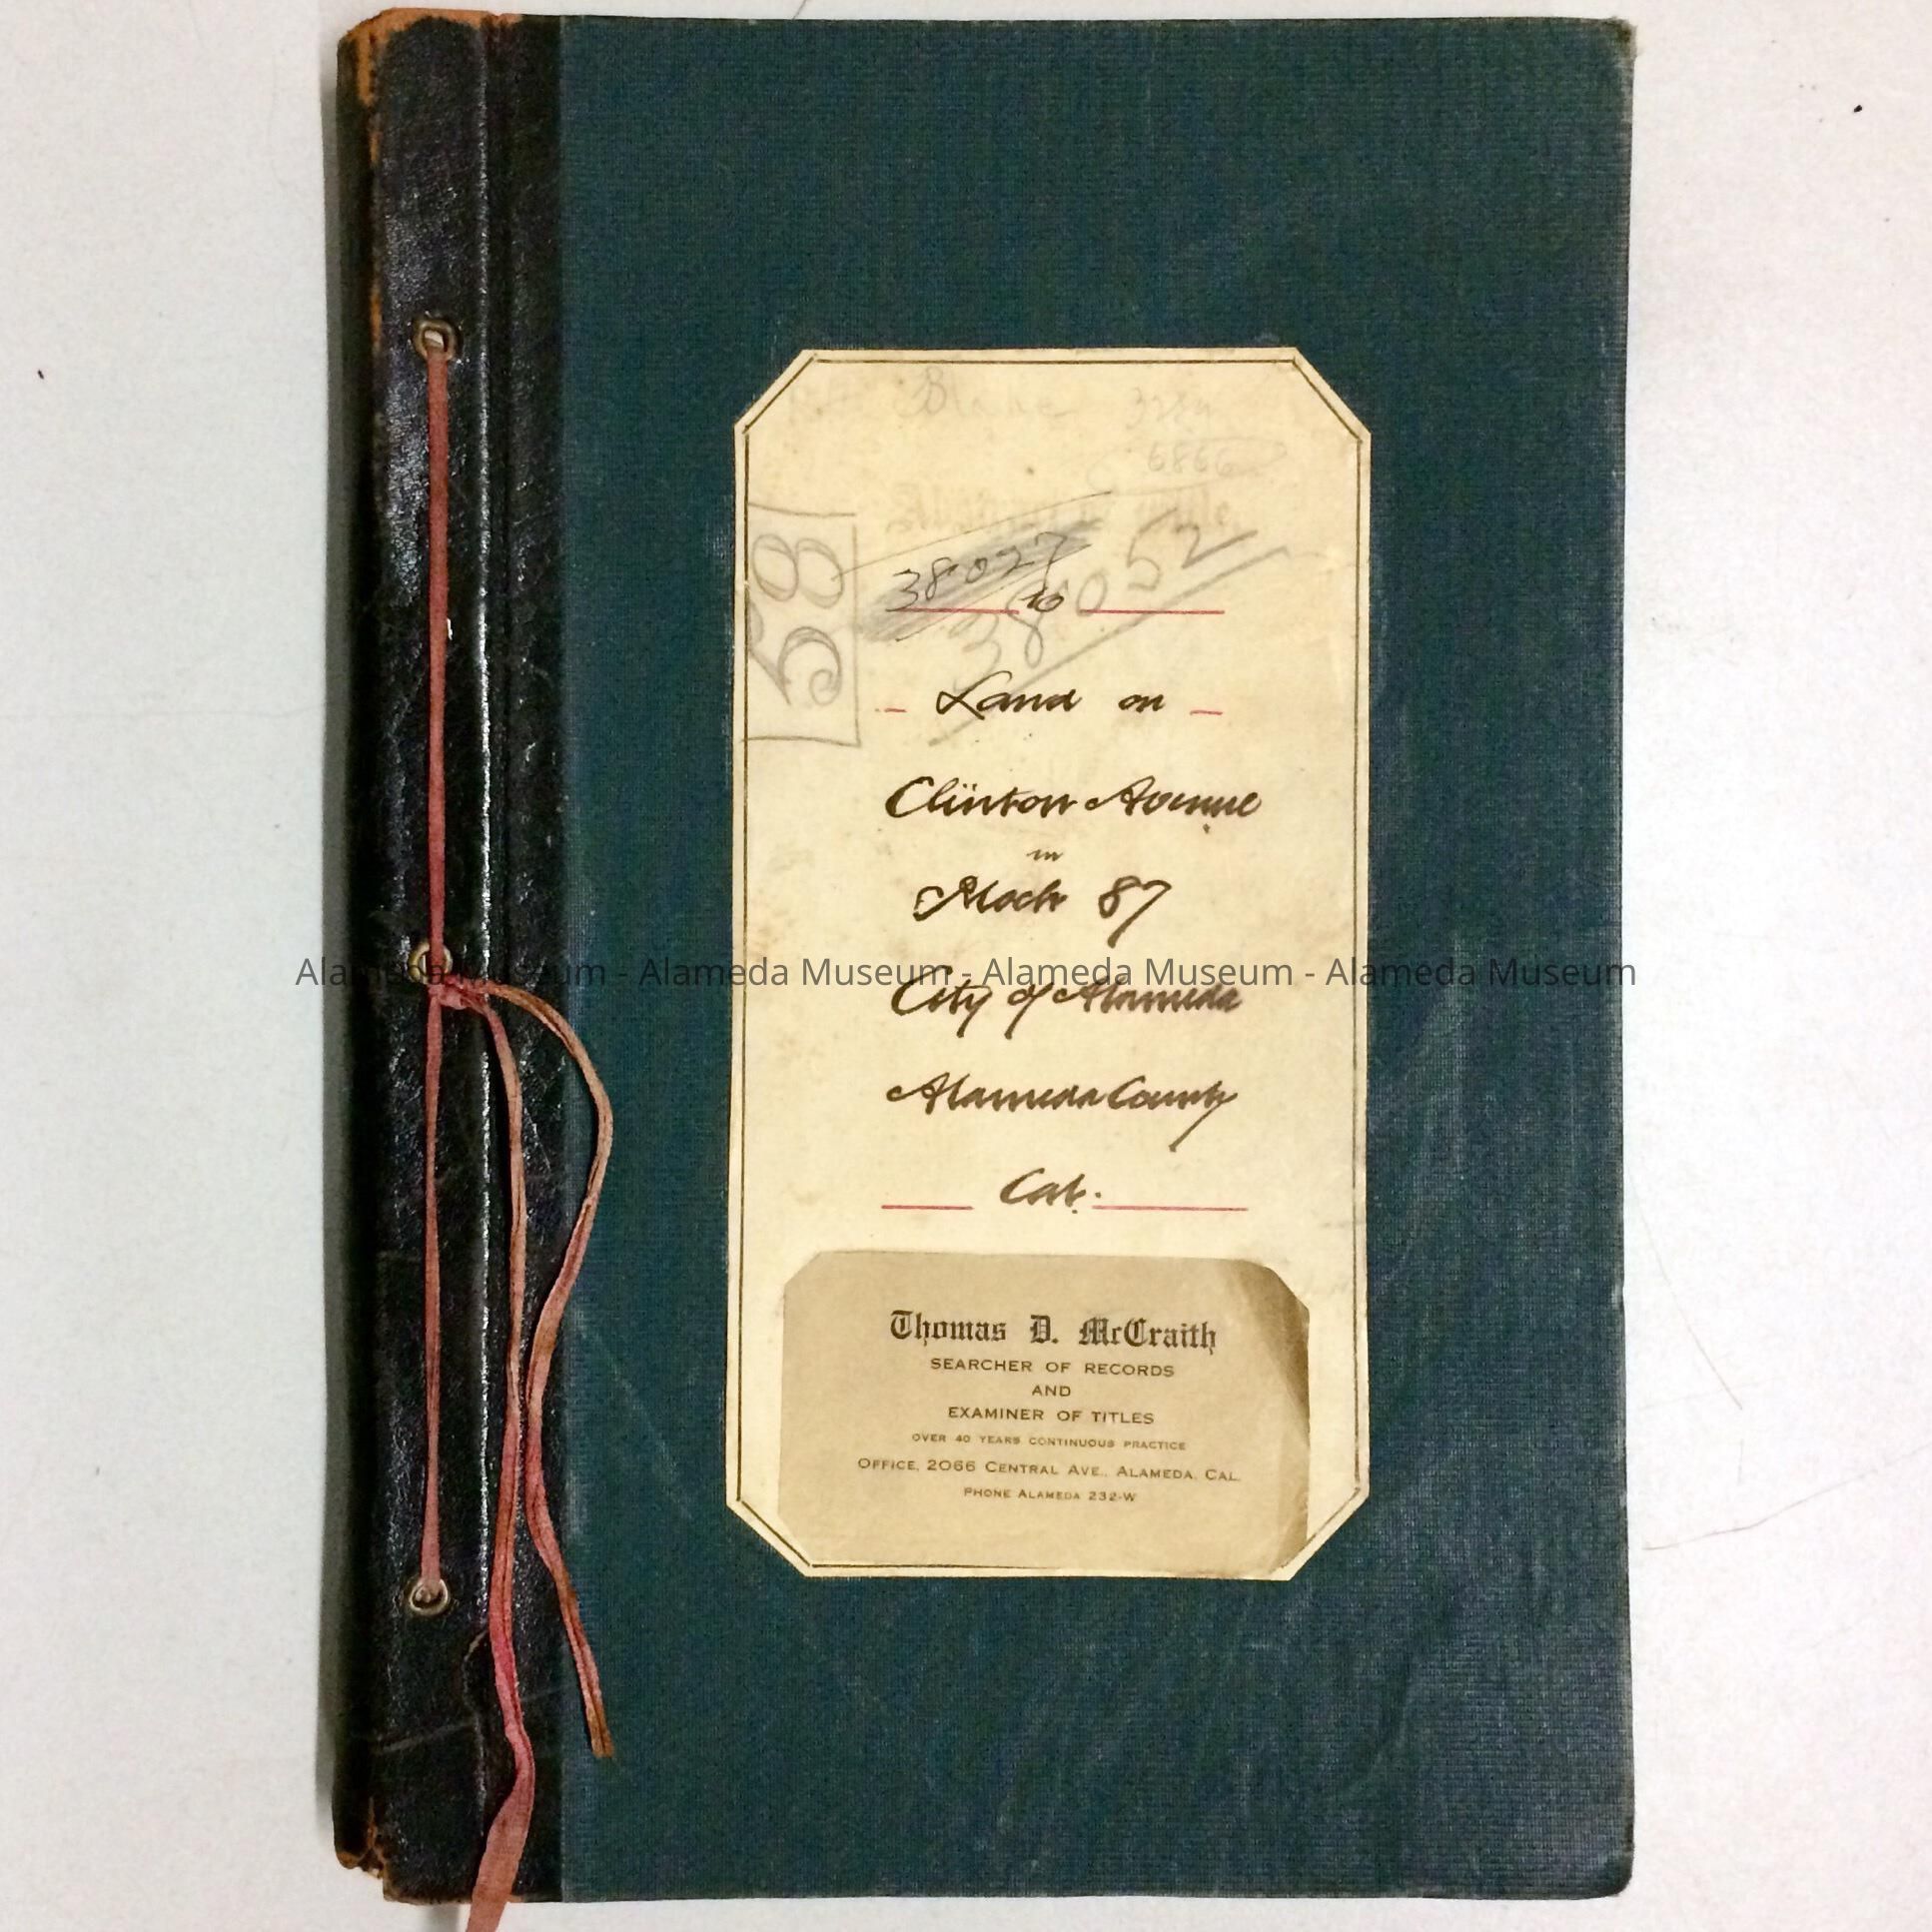 Blake
6866
Abstract of Title,
58
38027
38052
to
Land on
Clinton Avenue
in
Block 87
Alameda Museum - Alameda Museum - Alameda Museum - Alameda Museum
City of Alameda
Alameda County
Cal.
Thomas D. McCraith
SEARCHER OF RECORDS
AND
EXAMINER OF TITLES
OVER 40 YEARS CONTINUOUS PRACTICE
OFFICE, 2066 CENTRAL AVE., ALAMEDA, CAL.
PHONE ALAMEDA 232-W